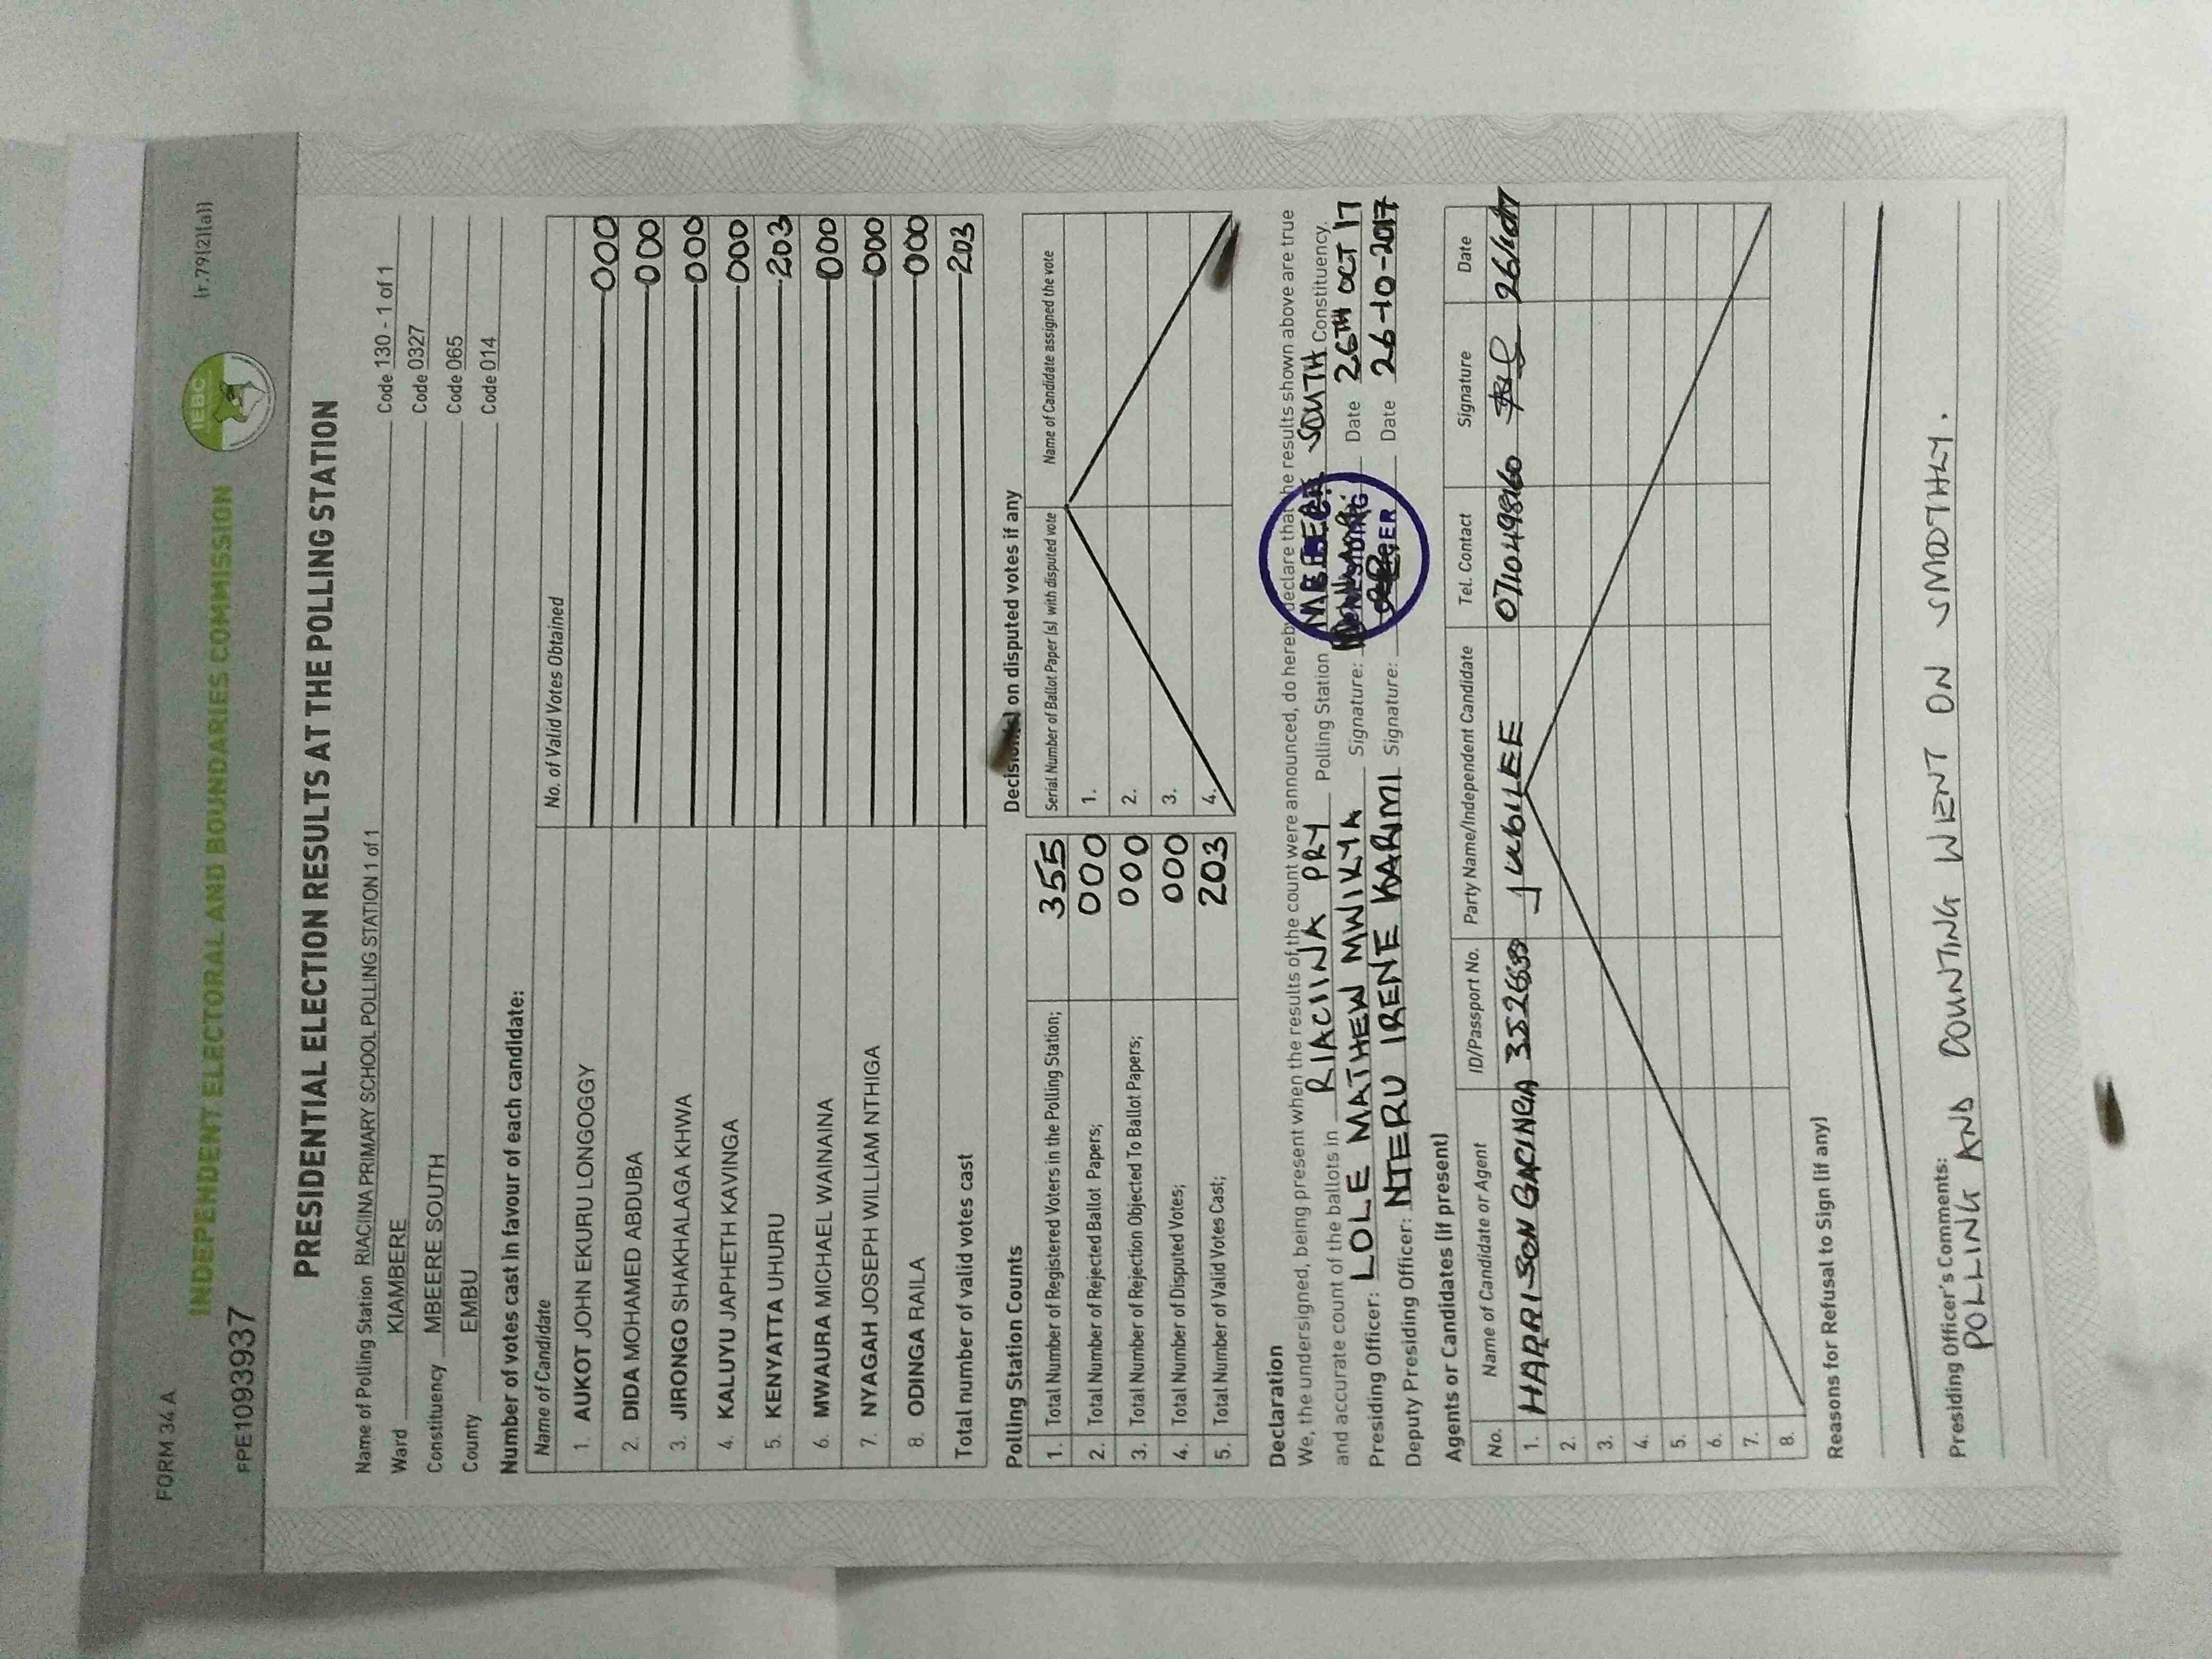 FORM 34 A
(r.79(2)(a))
IEBC
INDEPENDENT ELECTORAL AND BOUNDARIES COMMISSION
FPE1093937
PRESIDENTIAL ELECTION RESULTS AT THE POLLING STATION
Name of Polling Station RIACIINA PRIMARY SCHOOL POLLING STATION 1 of 1 Code 130 - 1 of 1
Ward KIAMBERE Code 0327
Constituency MBEERE SOUTH Code 065
County EMBU Code 014
Number of votes cast in favour of each candidate:
Name of Candidate No. of Valid Votes Obtained
1. AUKOT JOHN EKURU LONGOGGY 000
2. DIDA MOHAMED ABDUBA 000
3. JIRONGO SHAKHALAGA KHWA 000
4. KALUYU JAPHETH KAVINGA 000
5. KENYATTA UHURU 203
6. MWAURA MICHAEL WAINAINA 000
7. NYAGAH JOSEPH WILLIAM NTHIGA 000
8. ODINGA RAILA 000
Total number of valid votes cast 203
Polling Station Counts
1. Total Number of Registered Voters in the Polling Station; 355
2. Total Number of Rejected Ballot Papers; 000
3. Total Number of Rejection Objected To Ballot Papers; 000
4. Total Number of Disputed Votes; 000
5. Total Number of Valid Votes Cast; 203
Decision(s) on disputed votes if any
Serial Number of Ballot Paper (s) with disputed vote Name of Candidate assigned the vote
1.
2.
3.
4.
Declaration
We, the undersigned, being present when the results of the count were announced, do hereby declare that the results shown above are true
and accurate count of the ballots in RIACIINA PRY Polling Station MBEERE SOUTH Constituency.
Presiding Officer: LOLE MATHEW MWIKYA Signature: Date 26TH OCT 17
Deputy Presiding Officer: NTERU IRENE KARIMI Signature: Date 26-10-2017
PRESIDING
Agents or Candidates (if present)
No. Name of Candidate or Agent ID/Passport No. Party Name/Independent Candidate Tel. Contact Signature Date
1. HARRISON JUBILEE
2.
3.
4.
5.
6.
7.
8.
Reasons for Refusal to Sign (if any)
Presiding Officer's Comments:
POLLING AND COUNTING WENT ON SMOOTHLY.